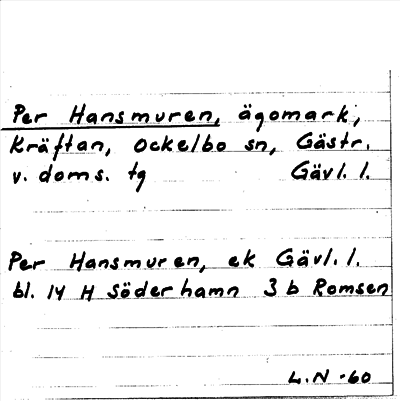 Per Hansmuren, ägomark,
Kräftan, Ockelbo sn, Gästr.
v. doms. tg Gävl. l.
Per Hansmuren, ek Gävl. l.
bl. 14 H Söderhamn 3 b Romsen
L.N -60